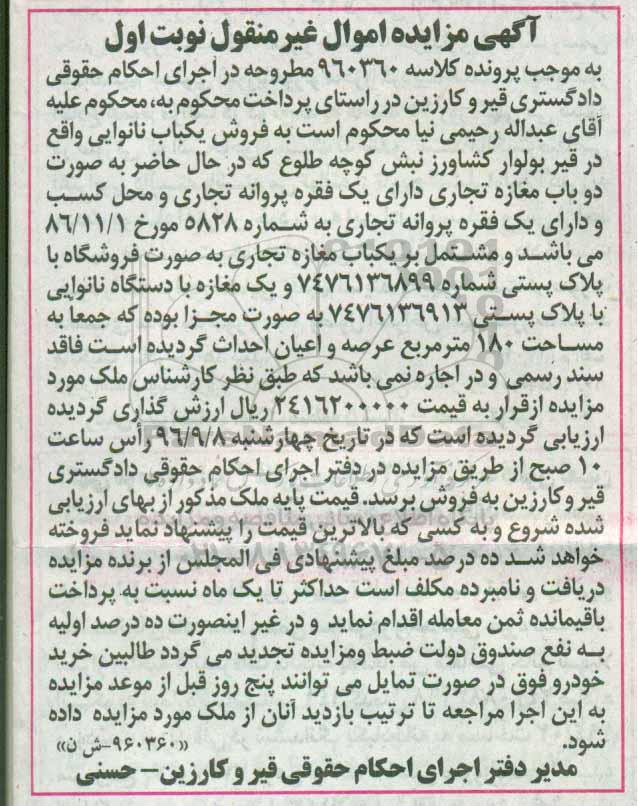 آگهی مزایده اموال غیر منقول نوبت اول
به موجب پرونده کلاسه ۹۶۰۳۶۰ مطروحه در اجرای احکام حقوقی
دادگستری قیر و کارزین در راستای پرداخت محکوم به، محکوم علیه
آقای عبداله رحیمی نیا محکوم است به فروش یکباب نانوایی واقع
در قیر بولوار کشاورز نبش کوچه طلوع که در حال حاضر به صورت
دو باب مغازه تجاری دارای یک فقره پروانه تجاری و محل کسب
و دارای یک فقره پروانه تجاری به شماره ۵۸۲۸ مورخ ۸۶/۱۱/۱
می باشد و مشتمل بر یکباب مغازه تجاری به صورت فروشگاه با
پلاک پستی شماره ۷۴۷۶۱۳۶۸۹۹ و یک مغازه با دستگاه نانوایی
با پلاک پستی ۷۴۷۶۱۳۶۹۱۳ به صورت مجزا بوده که جمعا به
مساحت ۱۸۰ مترمربع عرصه و اعیان احداث گردیده است فاقد
سند رسمی و در اجاره نمی باشد که طبق نظر کارشناس ملک مورد
مزایده ازقرار به قیمت ۲۴۱۶۲۰۰۰۰۰ ریال ارزش گذاری گردیده
ارزیابی گردیده است که در تاریخ چهارشنبه ۹۶/۹/۸ رأس ساعت
۱۰ صبح از طریق مزایده در دفتر اجرای احکام حقوقی دادگستری
قیر وکارزین به فروش برسد. قیمت پایه ملک مذکور از بهای ارزیابی
شده شروع و به کسی که بالاترین قیمت را پیشنهاد نماید فروخته
خواهد شد ده درصد مبلغ پیشنهادی فی المجلس از برنده مزایده
دریافت و نامبرده مکلف است حداکثر تا یک ماه نسبت به پرداخت
باقیمانده ثمن معامله اقدام نماید و در غیر اینصورت ده درصد اولیه
به نفع صندوق دولت ضبط ومزایده تجدید می گردد طالبین خرید
خودرو فوق در صورت تمایل می توانند پنج روز قبل از موعد مزایده
به این اجرا مراجعه تا ترتیب بازدید آنان از ملک مورد مزایده داده
شود.
«۹۶۰۳۶۰-ش ن»
مدیر دفتر اجرای احکام حقوقی قیر و کارزین – حسنی